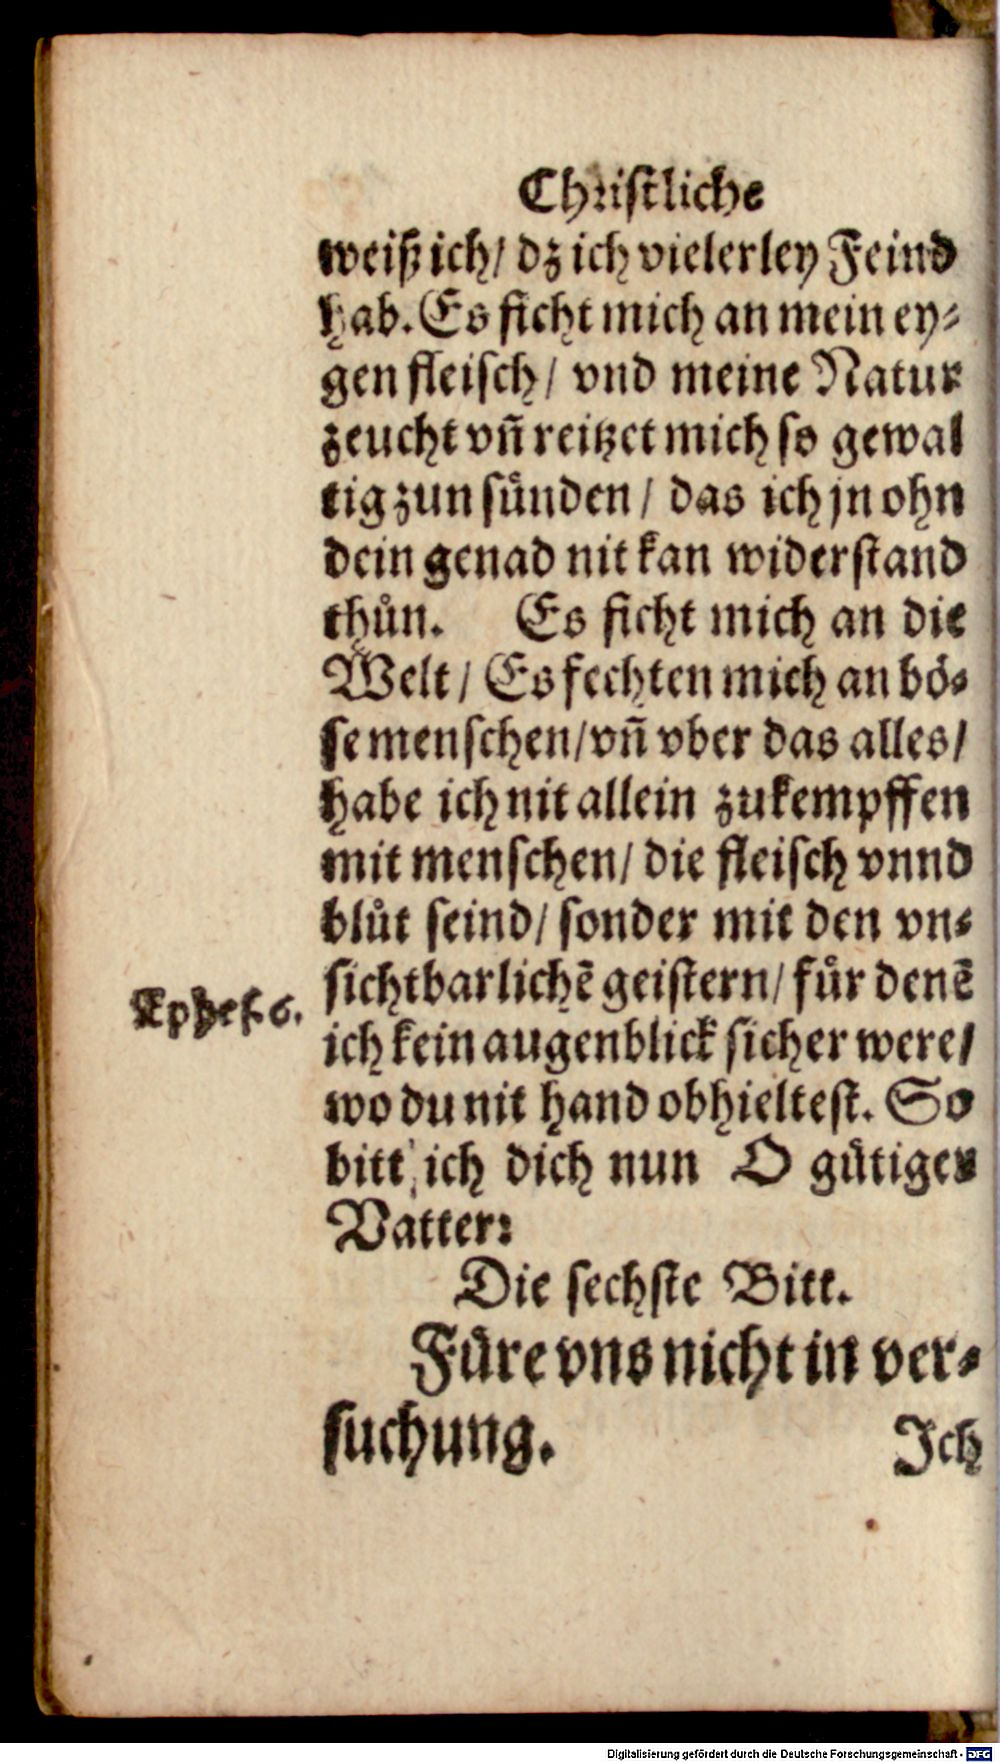 Christliche
weiß ich/ dz ich vielerley Feind
hab. Es ficht mich an mein ey⸗
gen fleisch/ vnd meine Natur
zeucht vñ reitzet mich so gewal
tig zun sünden/ das ich jn ohn
dein genad nit kan widerstand
thůn. Es ficht mich an die
Welt/ Es fechten mich an bö⸗
se menschen/ vñ vber das alles/
habe ich nit allein zukempffen
mit menschen/ die fleisch vnnd
blůt seind/ sonder mit den vn⸗
sichtbarlichē geistern/ für denē
Ephes. 6.
ich kein augenblick sicher were/
wo du nit hand obhieltest. So
bitt ich dich nun O gütiger
Vatter:
Die sechste Bitt.
Füre vns nicht in ver⸗
suchung.
Ich
Digitalisierung gefördert durch die Deutsche Forschungsgemeinschaft - DFG